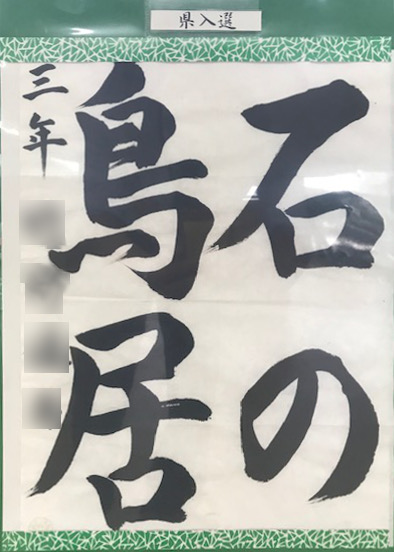 県入選
石の
鳥居
三年